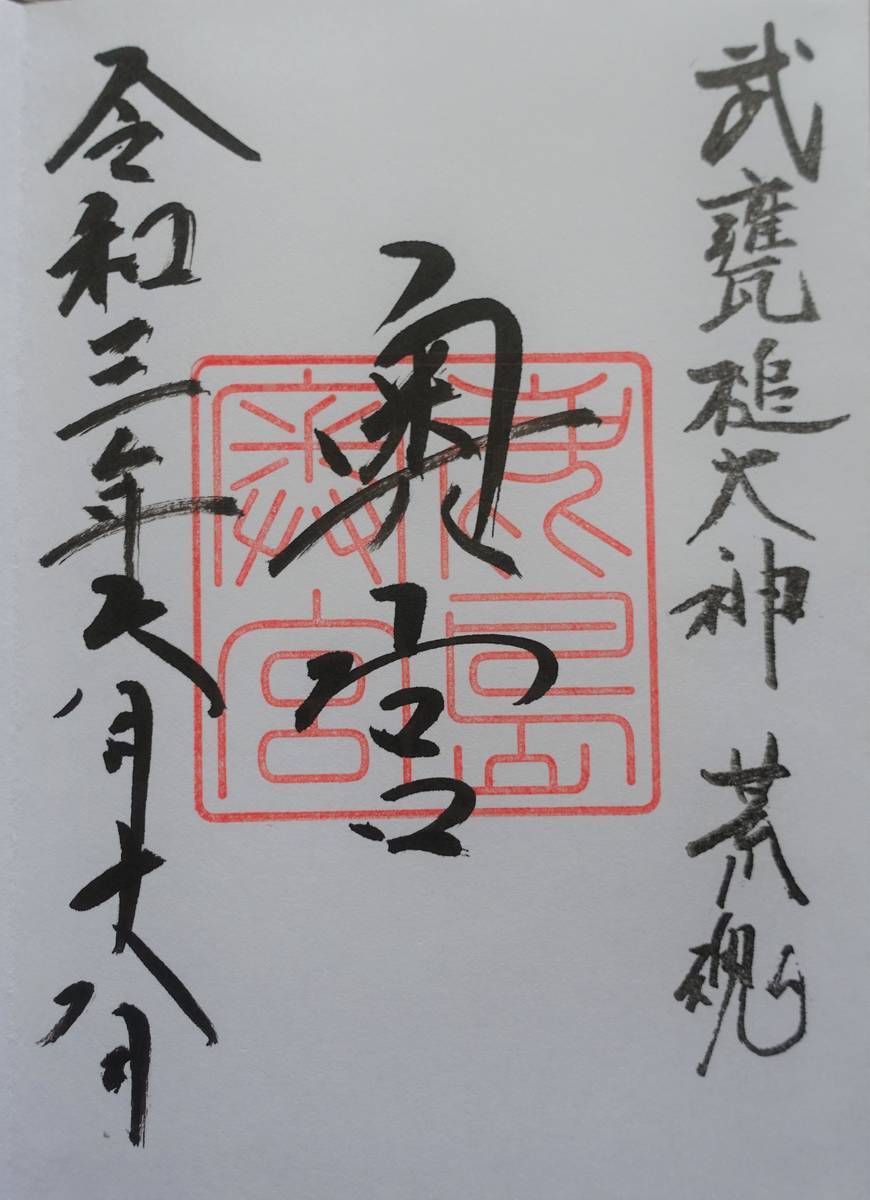 武甕槌大神 荒魂
奥宮
鹿島奥宮
令和三年六月十八日